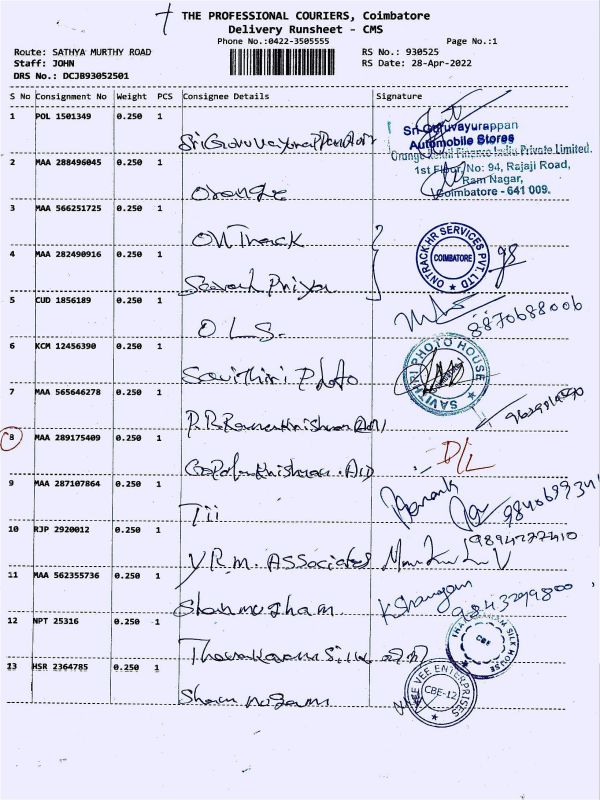 THE PROFESSIONAL COURIERS, Coimbatore
Delivery Runsheet - CMS
Phone No.:0422-3505555
Page No.:1
Route: SATHYA MURTHY ROAD
RS No.: 930525
Staff: JOHN
RS Date: 28-Apr-2022
DRS No.: DCJB93052501
S No Consignment No Weight PCS Consignee Details Signature
1 POL 1501349 0.250 1
Sri Guruvayurappan Auto
Sri Guruvayurappan
Automobile Stores
Orange Retail Finance India Private Limited.
1st Floor, No: 94, Rajaji Road,
Ram Nagar,
Coimbatore - 641 009.
2 MAA 288496045 0.250 1
Orange
3 MAA 566251725 0.250 1
On Track
ONTRACK HR SERVICES PVT. LTD
COIMBATORE
4 MAA 282490916 0.250 1
Sarath Priya
5 CUD 1856189 0.250 1
O L S.
8870688006
6 KCM 12456390 0.250 1
Savithiri Photo
SAVITHRI PHOTO HOUSE
7 MAA 565646278 0.250 1
8 MAA 289175409 0.250 1
Gopalakrishnan. AID
D/L
9 MAA 287107864 0.250 1
Tii
10 RJP 2920012 0.250 1
V.R.M. Associates
9894277410
11 MAA 562355736 0.250 1
Shanmugham
9843299800
12 NPT 25316 0.250 1
SILK HOUSE
CBE
13 HSR 2364785 0.250 1
VEE VEE ENTERPRISES
CBE-12